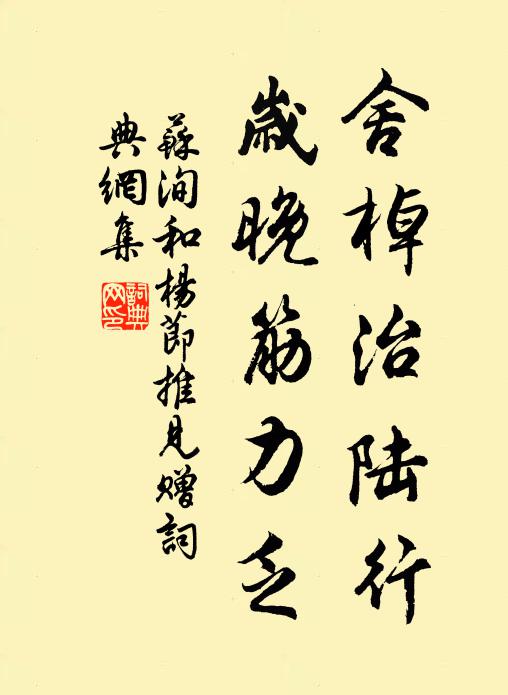 舍棹治陆行
歲晚筋力乏
蘇洵和楊節推見贈詞
典網集
詞典网印